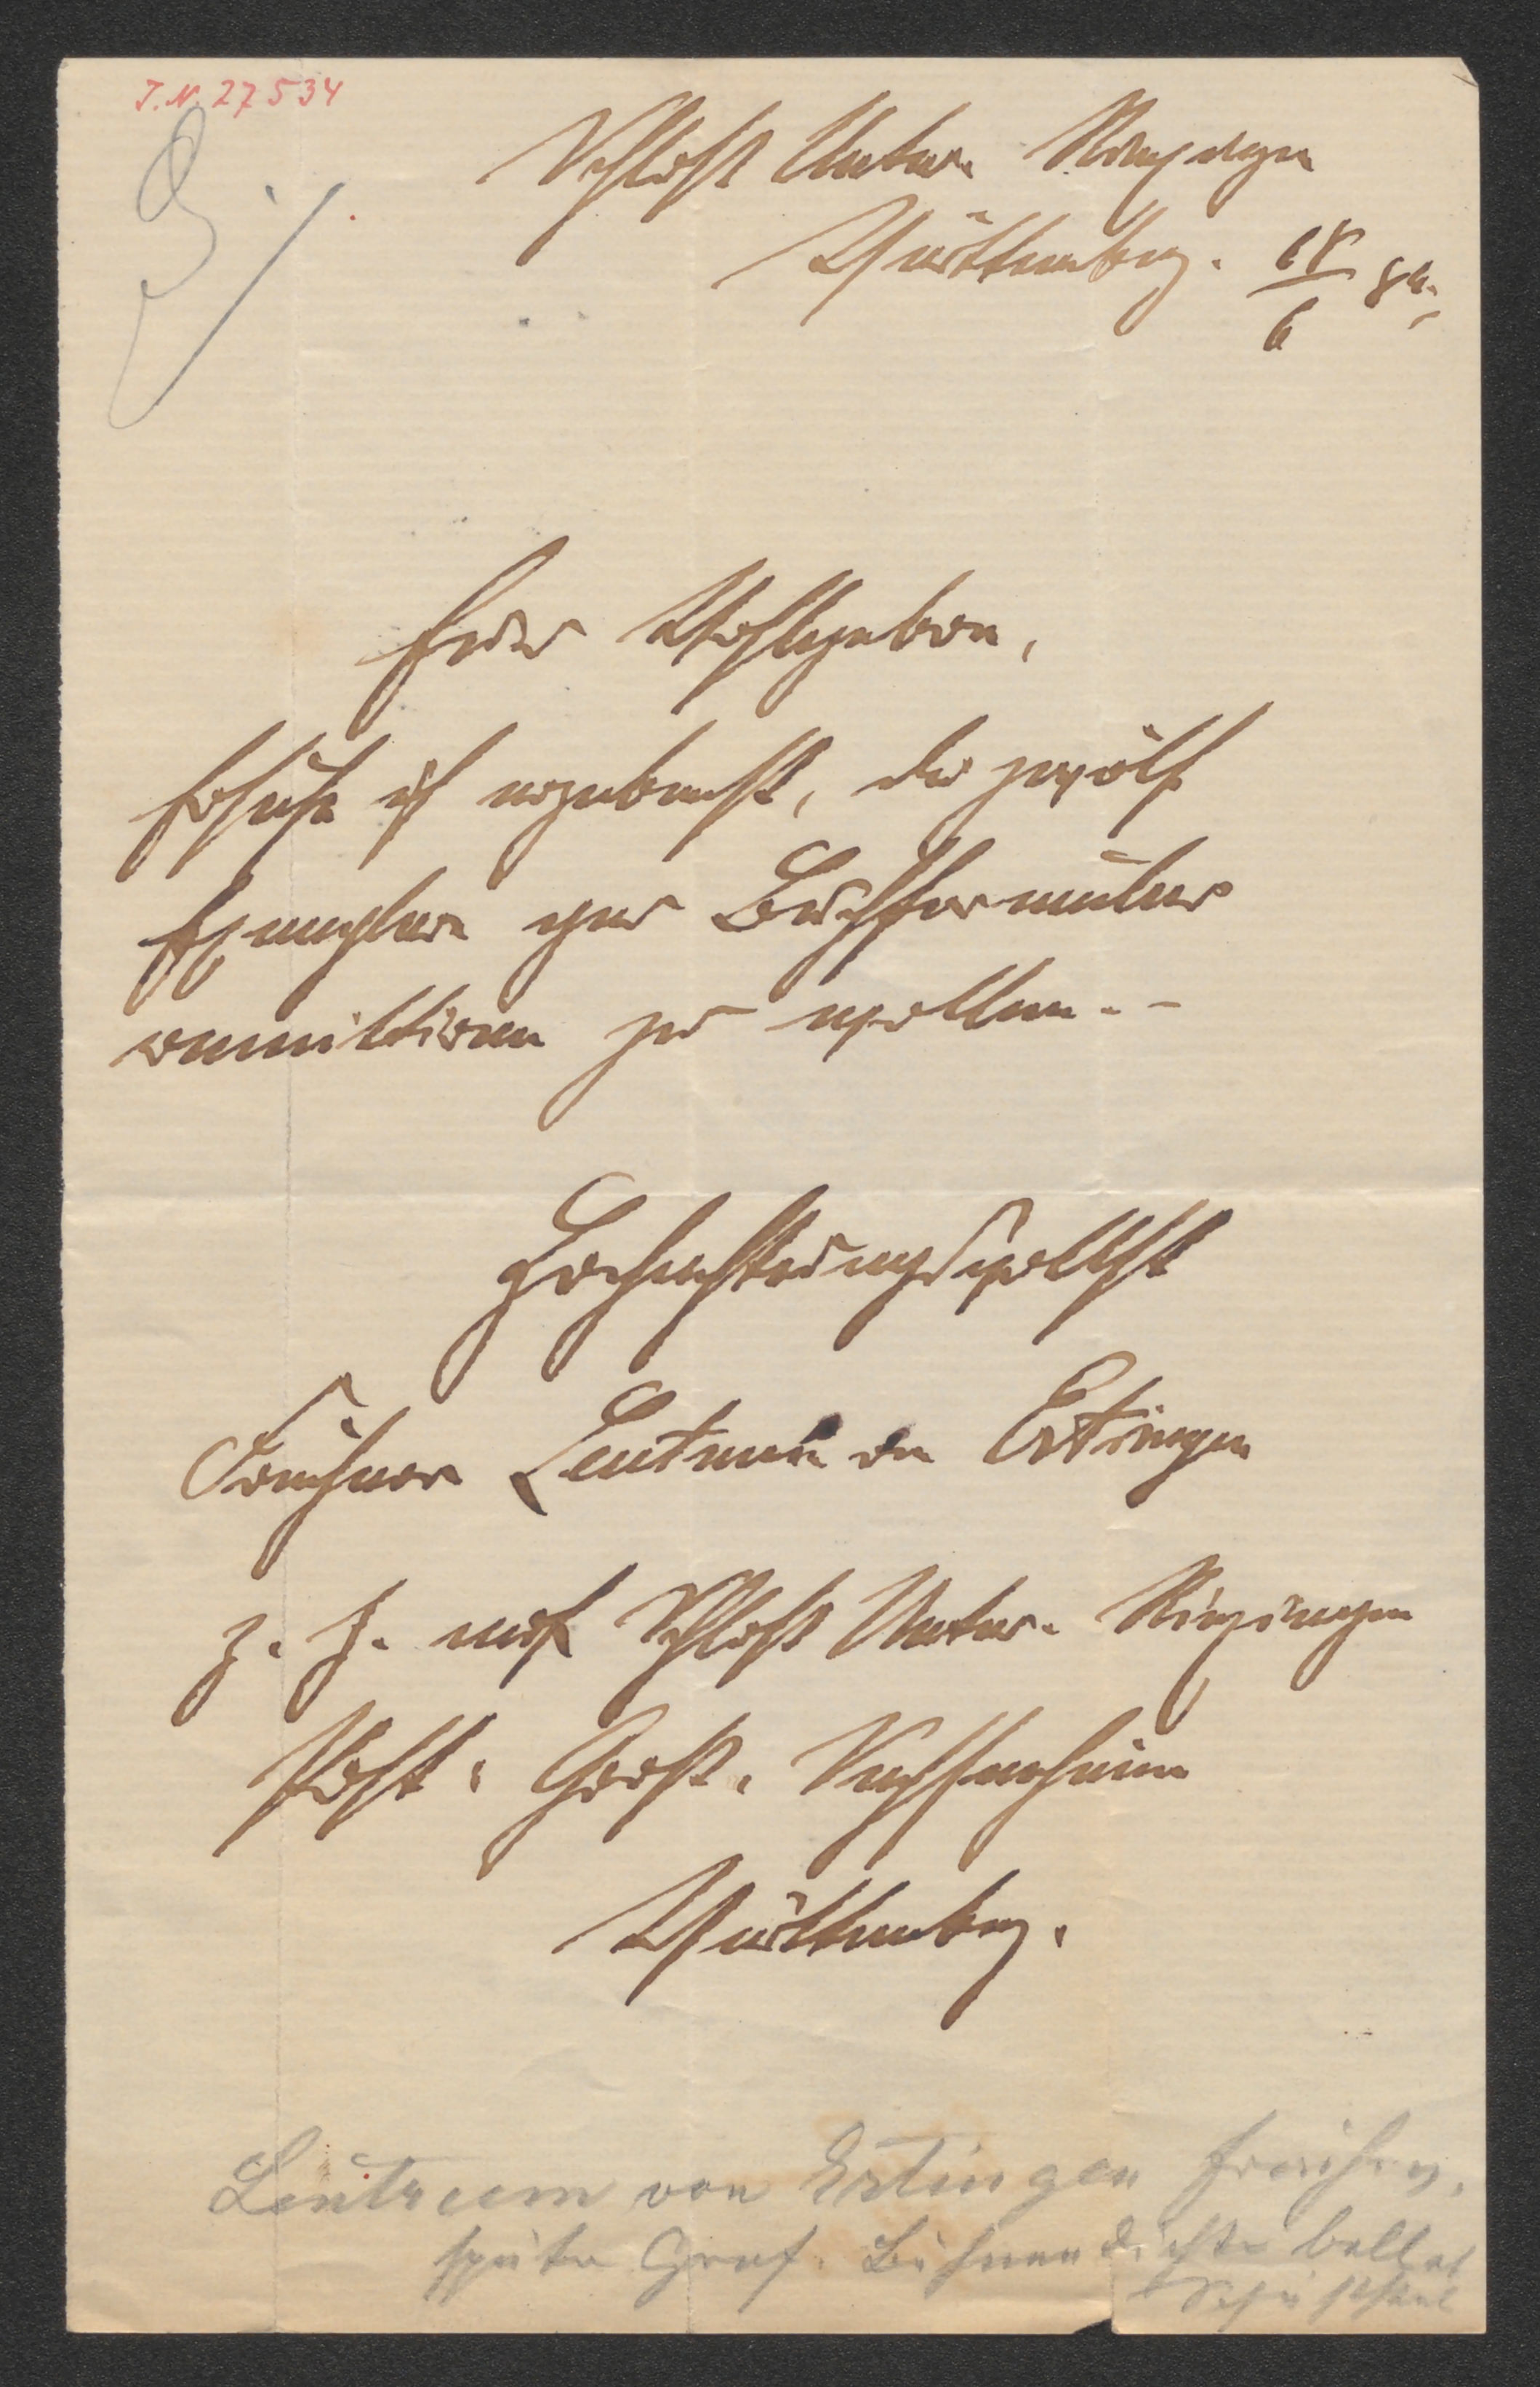 J.N. 27534
Schloß Unter-Riexingen
Württemberg. 18/6 84.
Euer Wohlgeboren,
ersuche ich ergebenst, die zwölf
Exemplare per
remittieren zu wollen. -
Hochachtungsvollst
Freiherr Leutrum von Ertingen
z. Z. auf Schloß Unter-Riexingen
Post: Groß-Sachsenheim
Württemberg.
Leutrum von Ertingen Freiherr,
später Graf. Bühnendichter